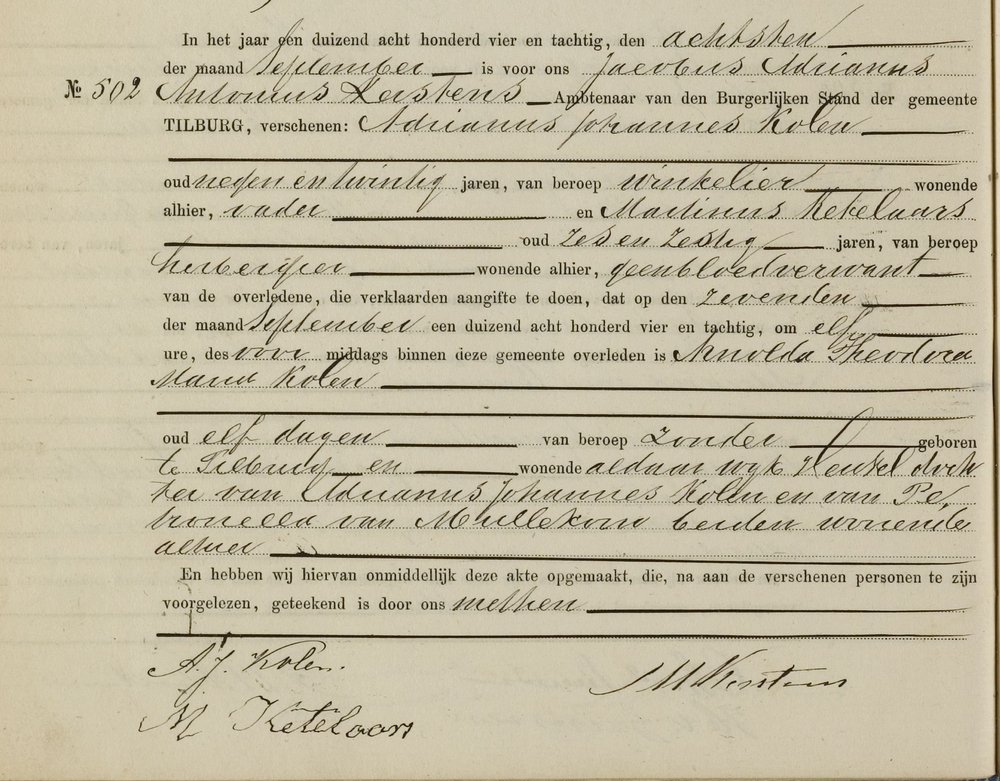 In het jaar een duizend acht honderd vier en tachtig, den achtsten
der maand September is voor ons Jacobus Adrianus
№ 502 Antonius Kerstens Ambtenaar van den Burgerlijken Stand der gemeente
TILBURG, verschenen: Adrianus Johannes Kolen
oud negen en twintig jaren, van beroep winkelier wonende
alhier, vader en Martinus Ketelaars
oud zes en zestig jaren, van beroep
herbergier wonende alhier, geen bloedverwant
van de overledene, die verklaarden aangifte te doen, dat op den zevenden
der maand September een duizend acht honderd vier en tachtig, om elf
ure, des voor middags binnen deze gemeente overleden is Arnolda Theodora
Maria Kolen
oud elf dagen van beroep zonder geboren
te Tilburg en wonende aldaar wyk Heukel doch
ter van Adrianus Johannes Kolen en van Pe,
tronella van Mullekom beiden wonende
alhier
En hebben wij hiervan onmiddellijk deze akte opgemaakt, die, na aan de verschenen personen te zijn
voorgelezen, geteekend is door ons met hen
A. J. Kolen.
M Ketelaars